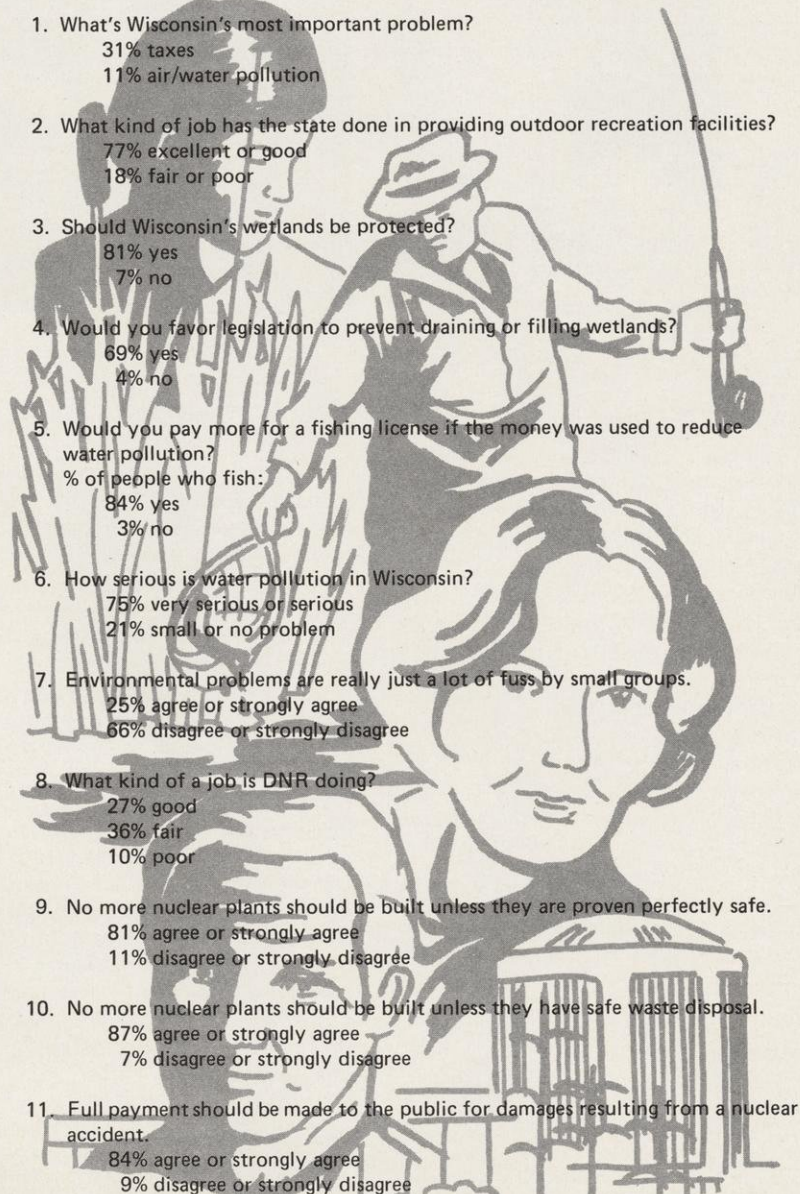 1. What's Wisconsin's most important problem?
31% taxes
11% air/water pollution
2. What kind of job has the state done in providing outdoor recreation facilities?
77% excellent or good
18% fair or poor
3. Should Wisconsin's wetlands be protected?
81% yes
7% no
4. Would you favor legislation to prevent draining or filling wetlands?
69% yes
4% no
5. Would you pay more for a fishing license if the money was used to reduce
water pollution?
% of people who fish:
84% yes
3% no
6. How serious is water pollution in Wisconsin?
75% very serious or serious
21% small or no problem
7. Environmental problems are really just a lot of fuss by small groups.
25% agree or strongly agree
66% disagree or strongly disagree
8. What kind of a job is DNR doing?
27% good
36% fair
10% poor
9. No more nuclear plants should be built unless they are proven perfectly safe.
81% agree or strongly agree
11% disagree or strongly disagree
10. No more nuclear plants should be built unless they have safe waste disposal.
87% agree or strongly agree
7% disagree or strongly disagree
11. Full payment should be made to the public for damages resulting from a nuclear
accident.
84% agree or strongly agree
9% disagree or strongly disagree